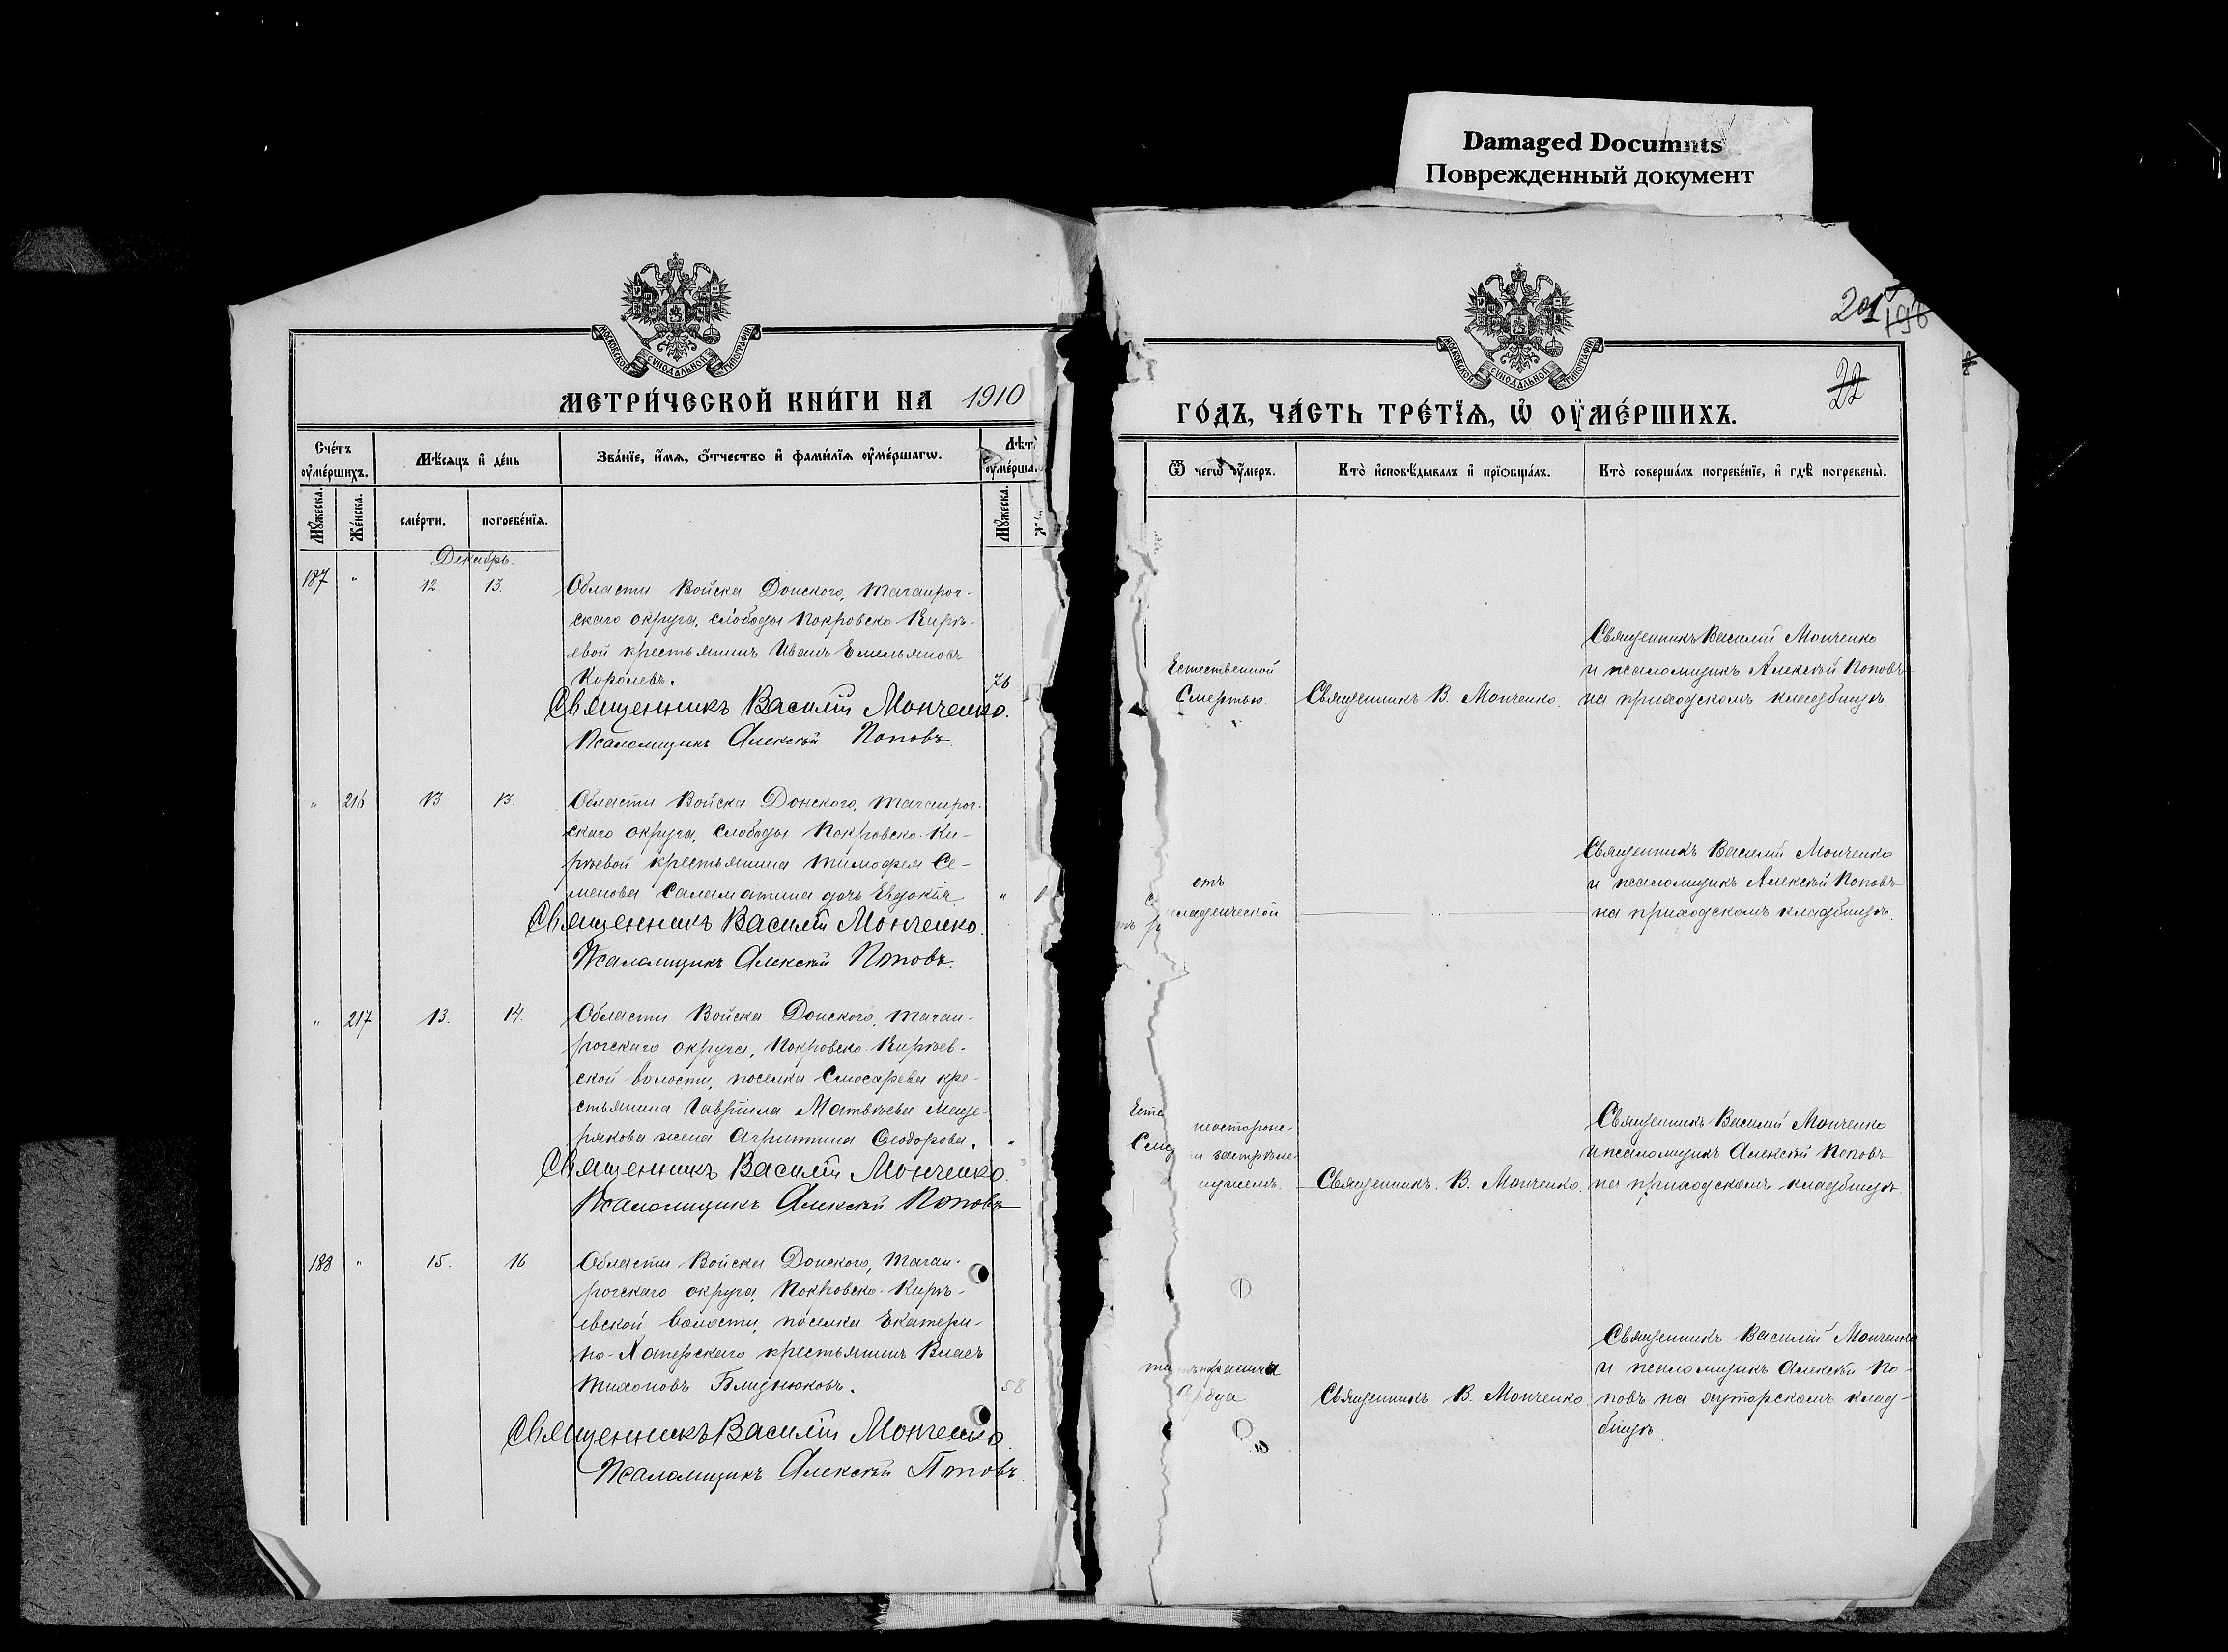 Damaged Documnts
Поврежденный документ
МОСКОВСКОЙ СѴНОДАЛЬНОЙ ТИПОГРАФІИ
МОСКОВСКОЙ СѴНОДАЛЬНОЙ ТИПОГРАФІИ
201
198
22
МЕТРИ́ЧЕСКОЙ КНИ́ГИ НА 1910
ГО́ДЪ, ЧА́СТЬ ТРЕ́ТЇѦ, Ѡ҆ ОУ҆МЕ́РШИХЪ.
Сче́тъ оу҆ме́ршихъ.
Мѣ́сѧцъ и҆ де́нь
Зва́нїе, и҆́мѧ, ѻ҆́тчество и҆ фами́лїѧ оу҆ме́ршагѡ.
Лѣт
оу҆ме́рша
Ѿ чегѡ̀ оу҆́меръ.
Кто̀ и҆сповѣ́дывалъ и҆ прїѡбща́лъ.
Кто̀ соверша́лъ погребе́нїе, и҆ гдѣ̀ погребены̀.
Мꙋ́жеска.
Же́нска.
сме́рти.
погребе́нїѧ.
Мꙋ́жеска.
Декабрь.
187 " 12. 13.
Области Войска Донского, Таганрог-
скаго округа, слободы Покровско-Кирѣ-
евой крестьянинъ Иванъ Емельяновъ
Королевъ. 76
Священникъ Василій Монченко.
Псаломщикъ Алексѣй Поповъ.
Естественной
Смертью.
Священникъ В. Монченко.
Священникъ Василій Монченко
и псаломщикъ Алексѣй Поповъ
на приходскомъ кладбищѣ.
" 216 13 13.
Области Войска Донского, Таганрог-
скаго округа, слободы Покровско-Ки-
рѣевой крестьянина Тимофея Се-
менова Саламатина дочь Евдокія. "
Священникъ Василій Монченко.
Псаломщикъ Алексѣй Поповъ.
отъ
младенческой
Священникъ Василій Монченко
и псаломщикъ Алексѣй Поповъ
на приходскомъ кладбищѣ.
" 217 13. 14.
Области Войска Донского, Таган-
рогскаго округа, Покровско-Кирѣев-
ской волости, поселка Слюсарева кре-
стьянина Гавріила Матвѣева Меще-
рякова жена Агриппина Ѳеодорова. "
Священникъ Василій Монченко.
Псаломщикъ Алексѣй Поповъ
Есте
неосторож-
застрѣле
мужемъ.
Священникъ В. Монченко.
Священникъ Василій Монченко
и псаломщикъ Алексѣй Поповъ
на приходскомъ кладбищѣ.
188 " 15. 16
Области Войска Донского, Таган-
рогскаго округа, Покровско-Кирѣ-
евской волости, поселка Екатери-
но-Хаперскаго крестьянинъ Власъ
Тихоновъ Близнюковъ. 58
Священникъ Василій Монченко.
Псаломщикъ Алексѣй Поповъ.
Священникъ В. Монченко.
Священникъ Василій Монченко
и псаломщикъ Алексѣй По-
повъ на хуторскомъ клад-
бищѣ.